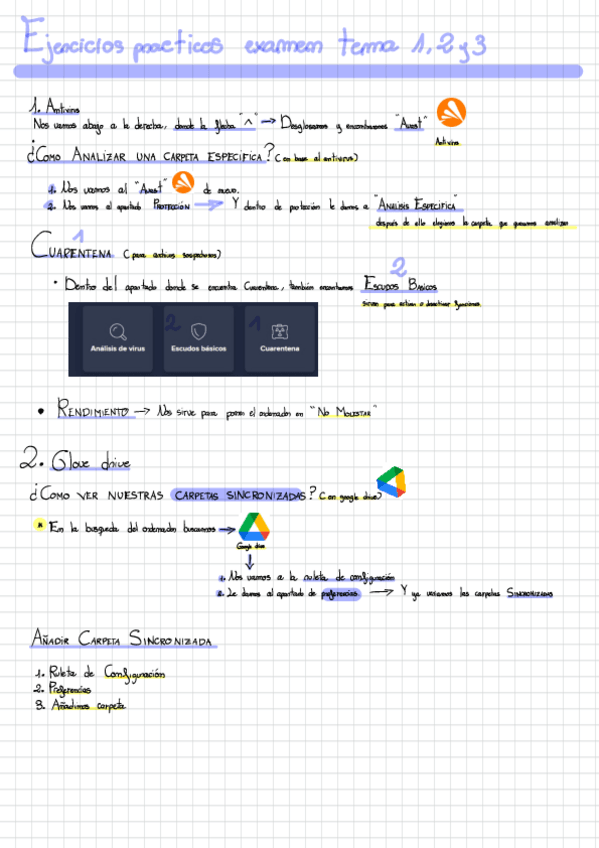 Ejercicios practicos examen tema 1, 2 y 3
1. Antivirus
Nos vamos abajo a la derecha, donde la flecha "^" → Desglosamos y encontramos "Avast"
Antivirus
¿Como Analizar una carpeta especifica? (en base al antivirus)
1. Nos vamos al "Avast" de nuevo.
2. Nos vamos al apartado Protección → Y dentro de protección le damos a "Análisis Especifica"
después de ello elegimos la carpeta que queremos analizar
1
Cuarentena (para archivos sospechosos)
2
• Dentro del apartado donde se encuentra Cuarentena, también encontramos Escudos Básicos
sirven para activar o desactivar funciones
2 1
Análisis de virus Escudos básicos Cuarentena
• Rendimiento → Nos sirve para poner el ordenador en "No Molestar"
2. Glove drive
¿Como ver nuestras carpetas sincronizadas? (en google drive)
* En la busqueda del ordenador buscamos →
Google drive
↓
1. Nos vamos a la ruleta de configuración
2. Le damos al apartado de preferencias → Y ya veriamos las carpetas Sincronizadas
Añadir Carpeta Sincronizada
1. Ruleta de Configuración
2. Preferencias
3. Añadimos carpeta